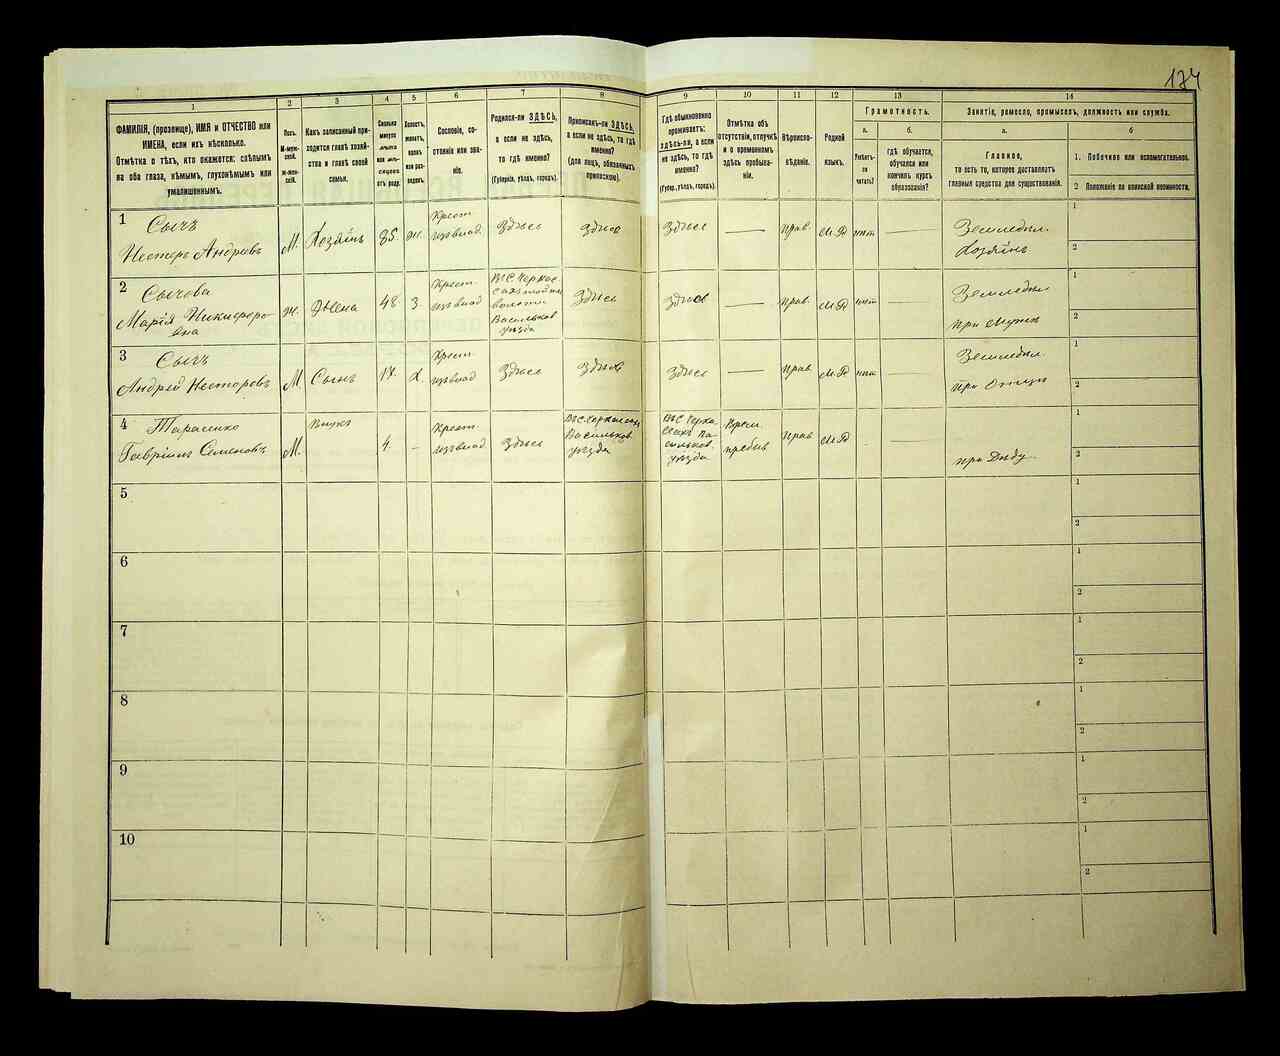 174
1 2 3 4 5 6 7 8 9 10 11 12 13 14
ФАМИЛІЯ, (прозвище), ИМЯ и ОТЧЕСТВО или
ИМЕНА, если ихъ нѣсколько.
Отмѣтка о тѣхъ, кто окажется: слѣпымъ
на оба глаза, нѣмымъ, глухонѣмымъ или
умалишеннымъ.
Полъ.
М-муж-
ской.
Ж-жен-
скій.
Какъ записанный при-
ходится главѣ хозяй-
ства и главѣ своей
семьи.
Сколько
минуло
лѣтъ
или мѣ-
сяцевъ
отъ роду.
Холостъ,
женатъ,
вдовъ
или раз-
веденъ.
Сословіе, со-
стояніе или зва-
ніе.
Родился-ли ЗДѢСЬ,
а если не здѣсь,
то гдѣ именно?
(Губернія, уѣздъ, городъ).
Приписанъ-ли ЗДѢСЬ,
а если не здѣсь, то гдѣ
именно?
(для лицъ, обязанныхъ
припиской).
Гдѣ обыкновенно
проживаетъ:
здѣсь-ли, а если
не здѣсь, то гдѣ
именно?
(Губер., уѣздъ, городъ).
Отмѣтка объ
отсутствіи, отлучкѣ
и о временномъ
здѣсь пребыва-
ніи.
Вѣроиспо-
вѣданіе.
Родной
языкъ.
Грамотность.
а.
Умѣетъ-
ли
читать?
б.
гдѣ обучается,
обучался или
кончилъ курсъ
образованія?
Занятіе, ремесло, промыселъ, должность или служба.
а.
Главное,
то есть то, которое доставляетъ
главныя средства для существованія.
б
1. Побочное или вспомогательное.
2 Положеніе по воинской повинности.
1
Сычъ
Нестеръ Андреевъ
М.
Хозяинъ
ж.
Крест.
Здѣсь
Здѣсь
Здѣсь
—
Прав.
нѣт
—
Земледѣл.
Хозяинъ
1
2
2
Сычова
Марія Никифоро-
вна
ж.
Жена
48
З.
Крест.
волости
Васильков
уѣзда
Здѣсь
Здѣсь
—
Прав
нѣт
—
Земледѣл
при мужѣ
1
2
3
Сычъ
Андрей Нестеровъ
М
Сынъ
17.
Х.
Крест.
Здѣсь
Здѣсь
Здѣсь
—
Прав
нѣт
—
Земледѣл.
при Отцѣ
1
2
4
Тарасенко
Гаврiилъ Семеновъ
М.
Внукъ
4
-
Крест.
Здѣсь
Васильков.
уѣзда
Ва-
сильков.
уѣзда
Врем.
пребыв
Прав
—
при Дѣду
1
2
5
1
2
6
1
2
7
1
2
8
1
2
9
1
2
10
1
2